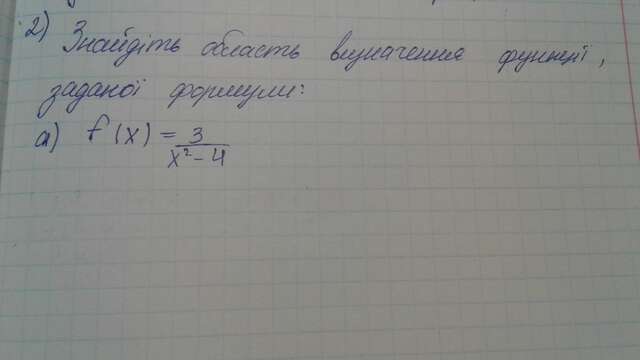 2) Знайдіть область визначення функції,
заданої формули:
а) f(x) = 3
x² - 4